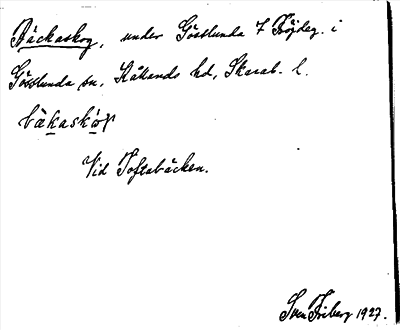 Bäckaskog, under Gösslunda 7 Böjdeg. i
Gösslunda sn, Kålands hd, Skarab. l.
bäkaskóg
Vid Toftabäcken.
Sven Friberg 1927.